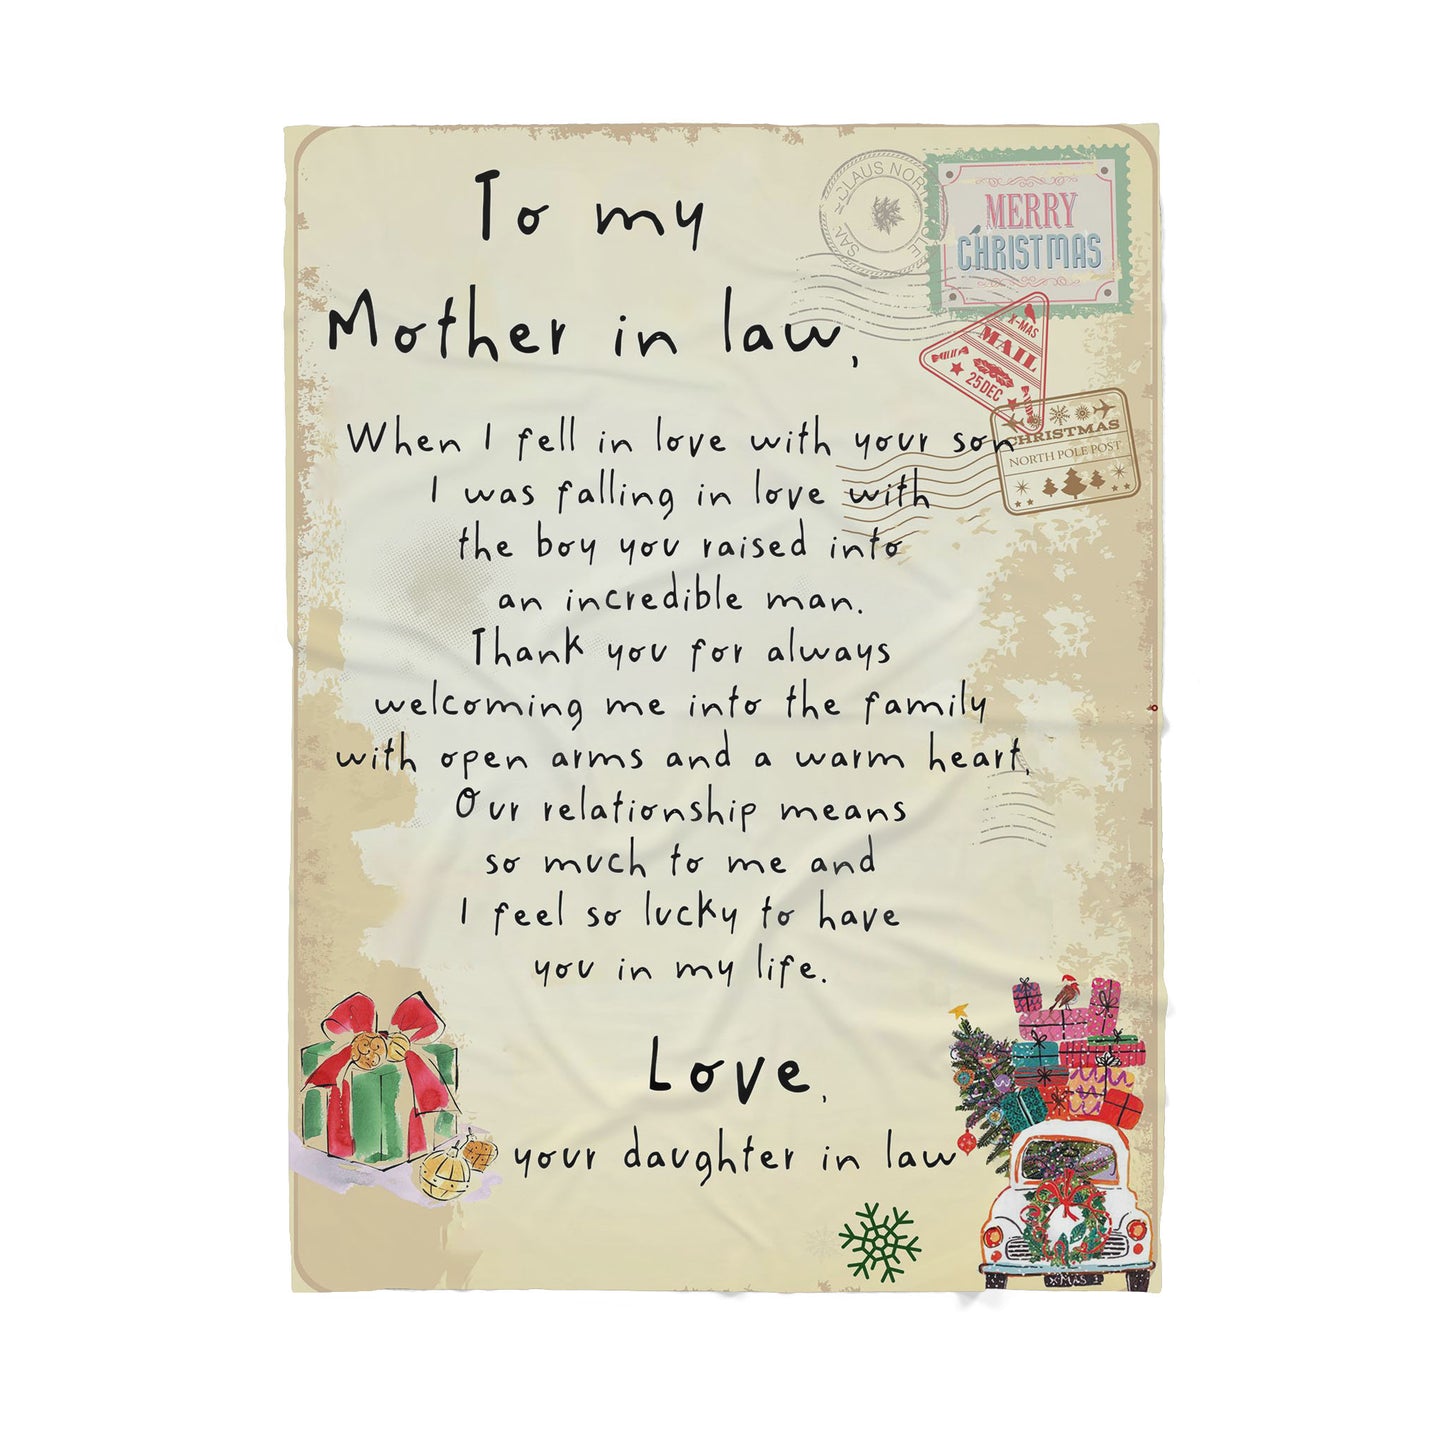 To my
Mother in law,
When I fell in love with your son
I was falling in love with
the boy you raised into
an incredible man.
Thank you for always
welcoming me into the family
with open arms and a warm heart,
Our relationship means
so much to me and
I feel so lucky to have
you in my life.
Love,
your daughter in law
CLAUS NORT
OLE
SAN
MERRY
CHRISTMAS
X-MAS
MAIL
25 DEC
CHRISTMAS
NORTH POLE POST